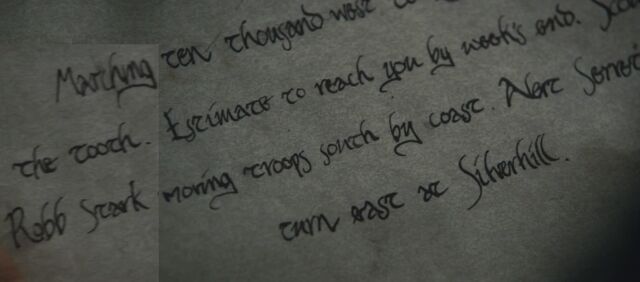 Marching ten thousand west
the tooth. Estimate to reach you by week's end.
Robb Stark moving troops south by coast.
turn east at Silverhill.